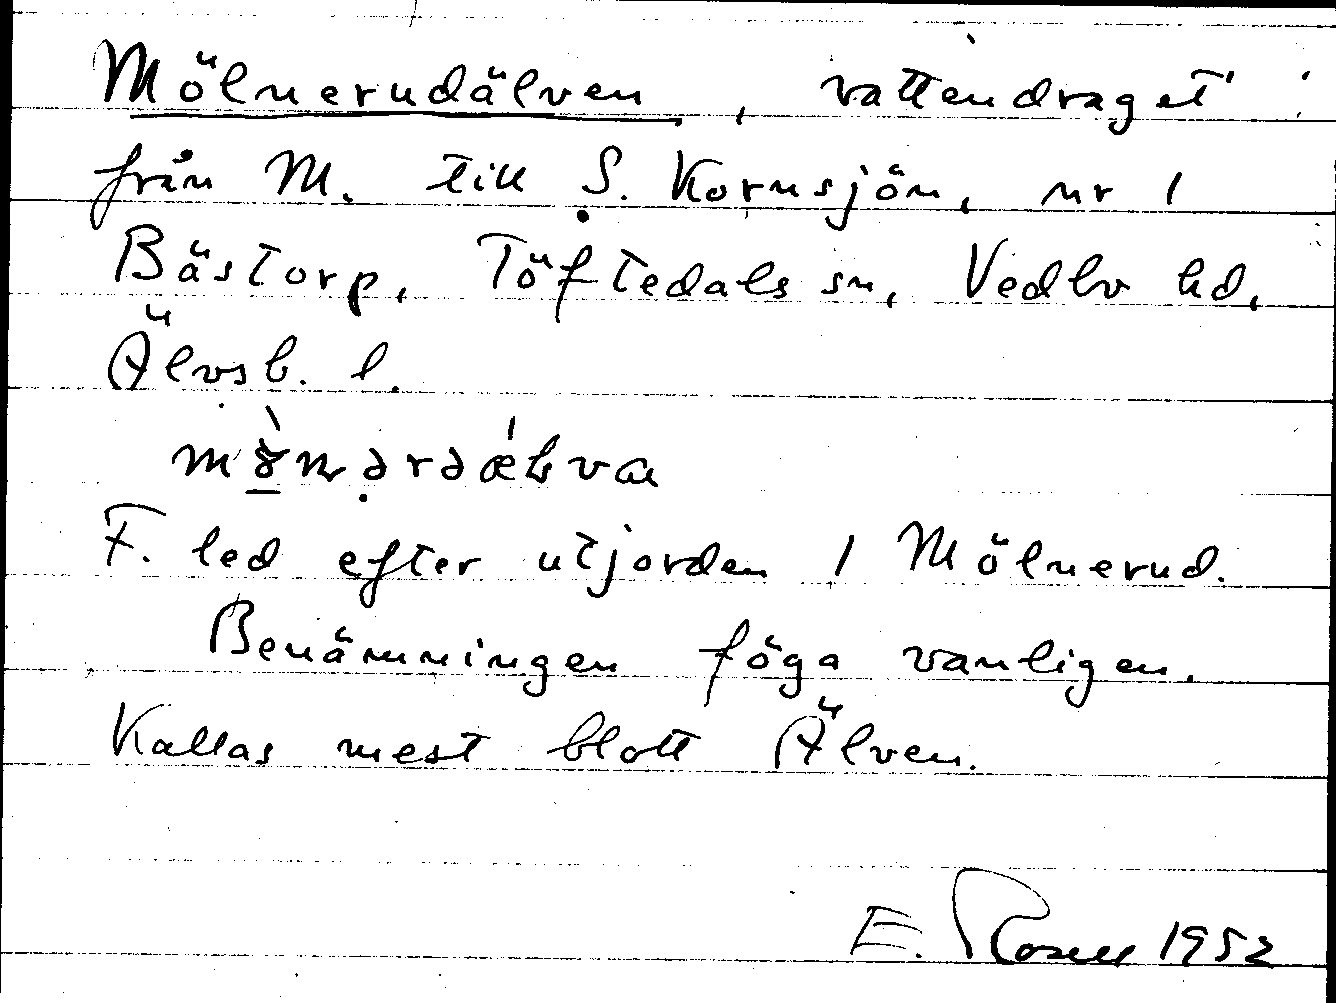 Mölnerudälven, vattendraget
från M. till S. Kornsjön, nr 1
Bästorp, Töftedals sn, Vedbo hd,
Älvsb. l.
F. led efter utjorden 1 Mölnerud.
Benämningen föga vanligen.
Kallas mest blott Älven.
E. Rosell 1952